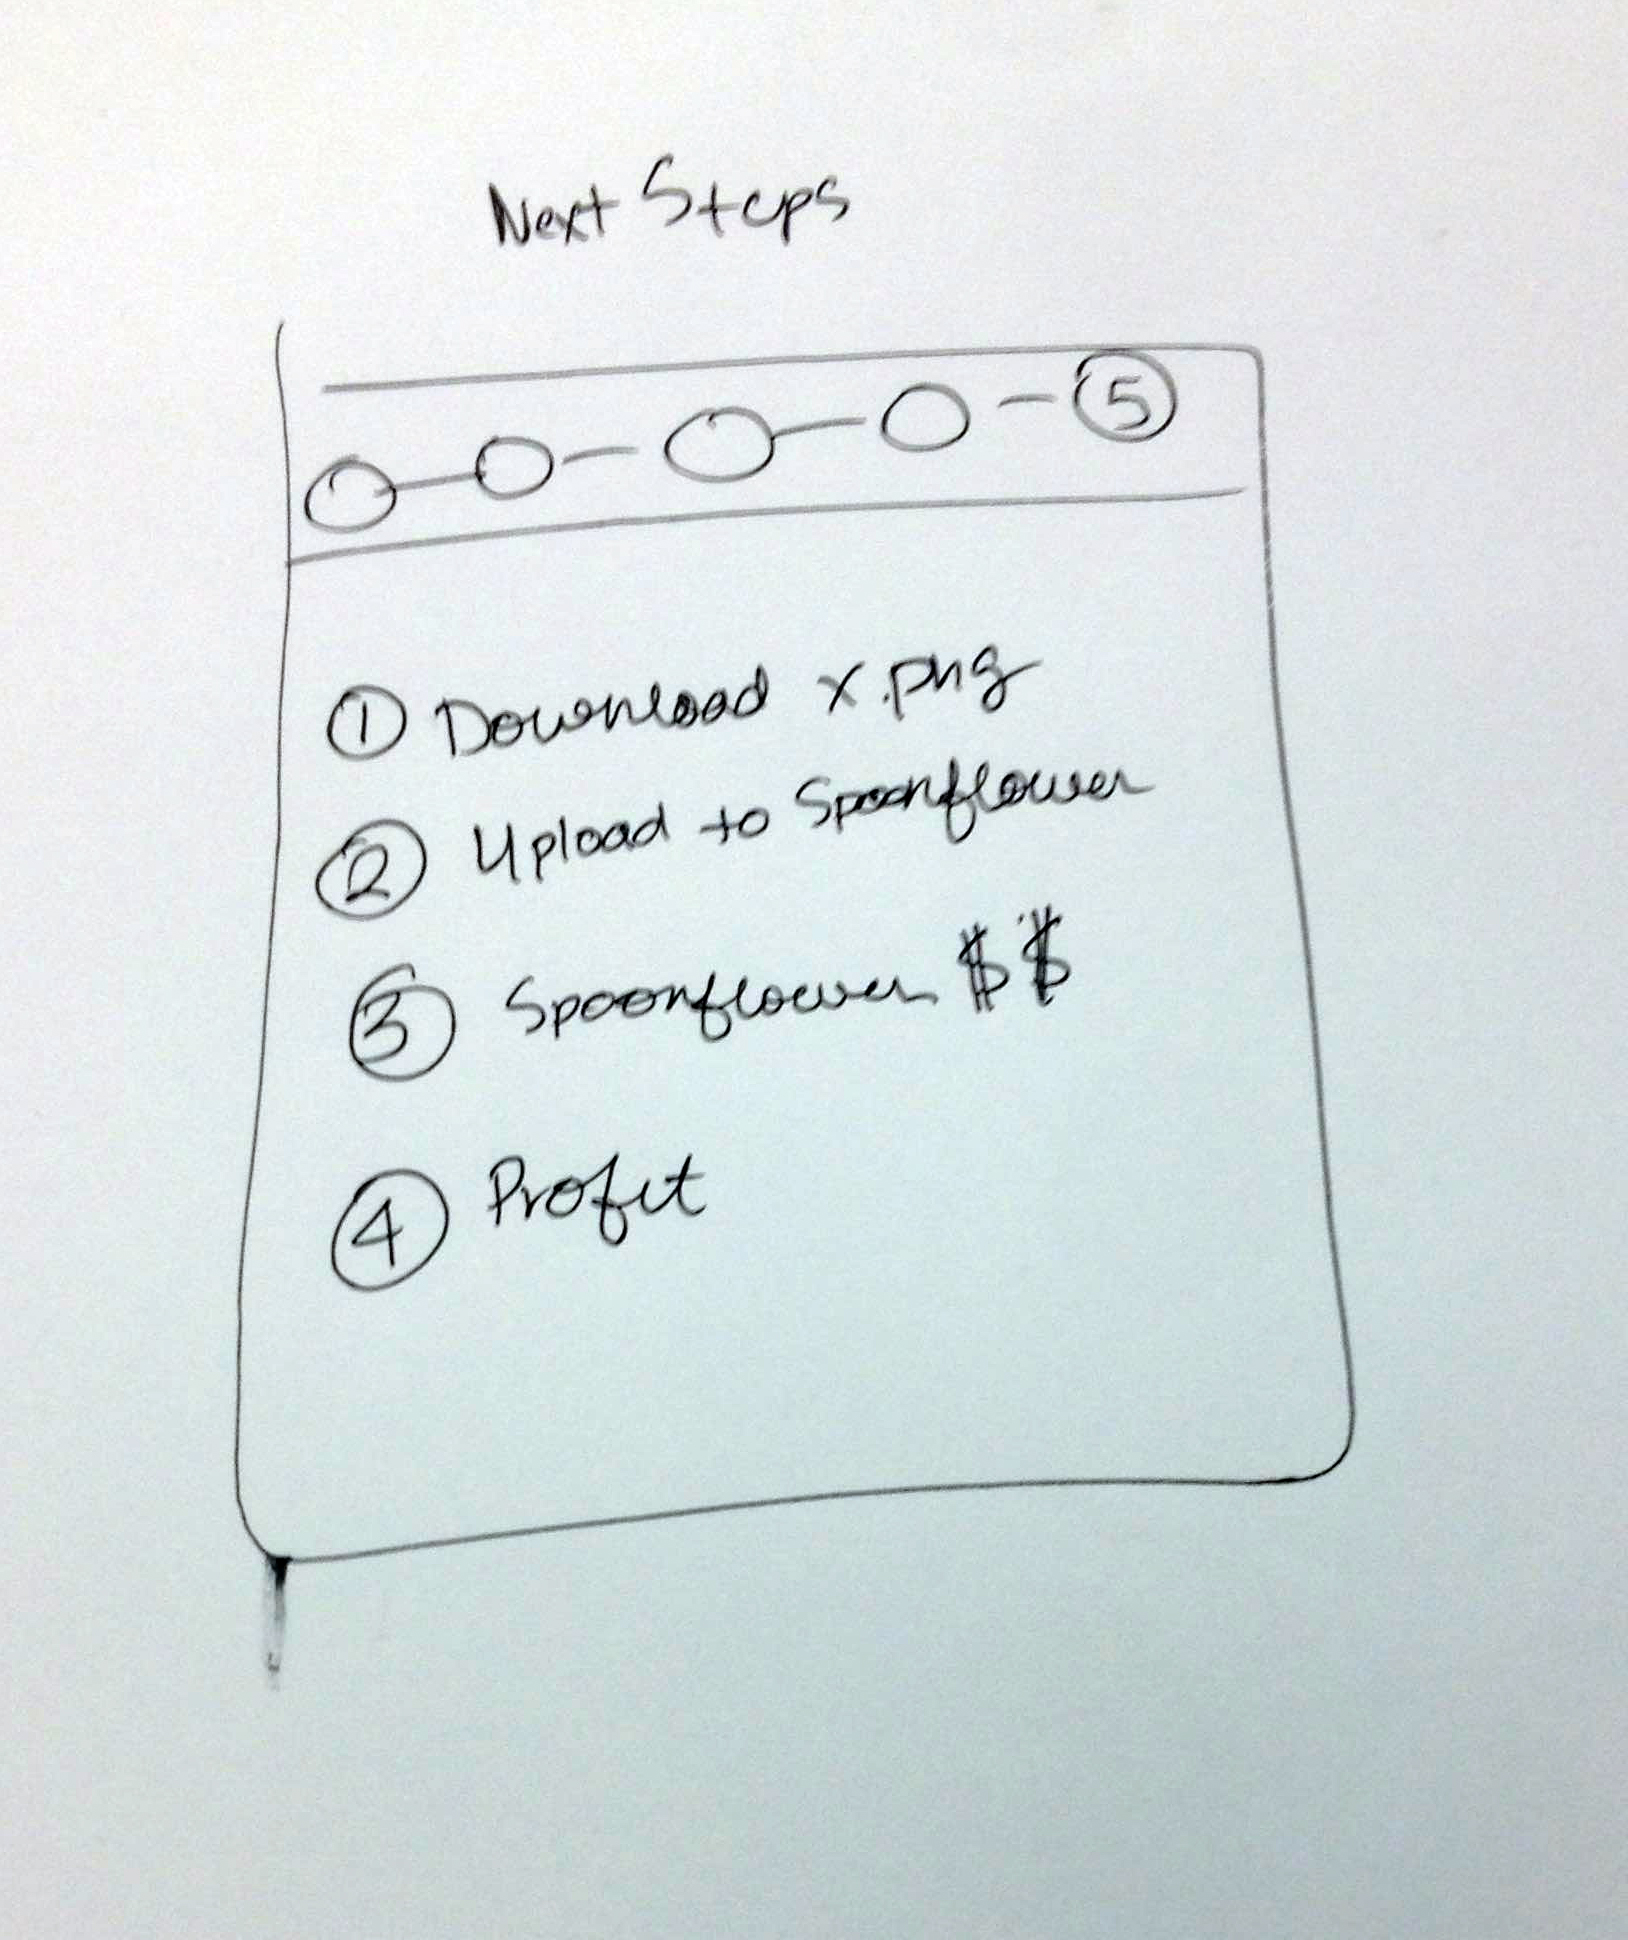 Next Steps
5
1 Download x.png
2 Upload to Spoonflower
3 Spoonflower $$
4 Profit